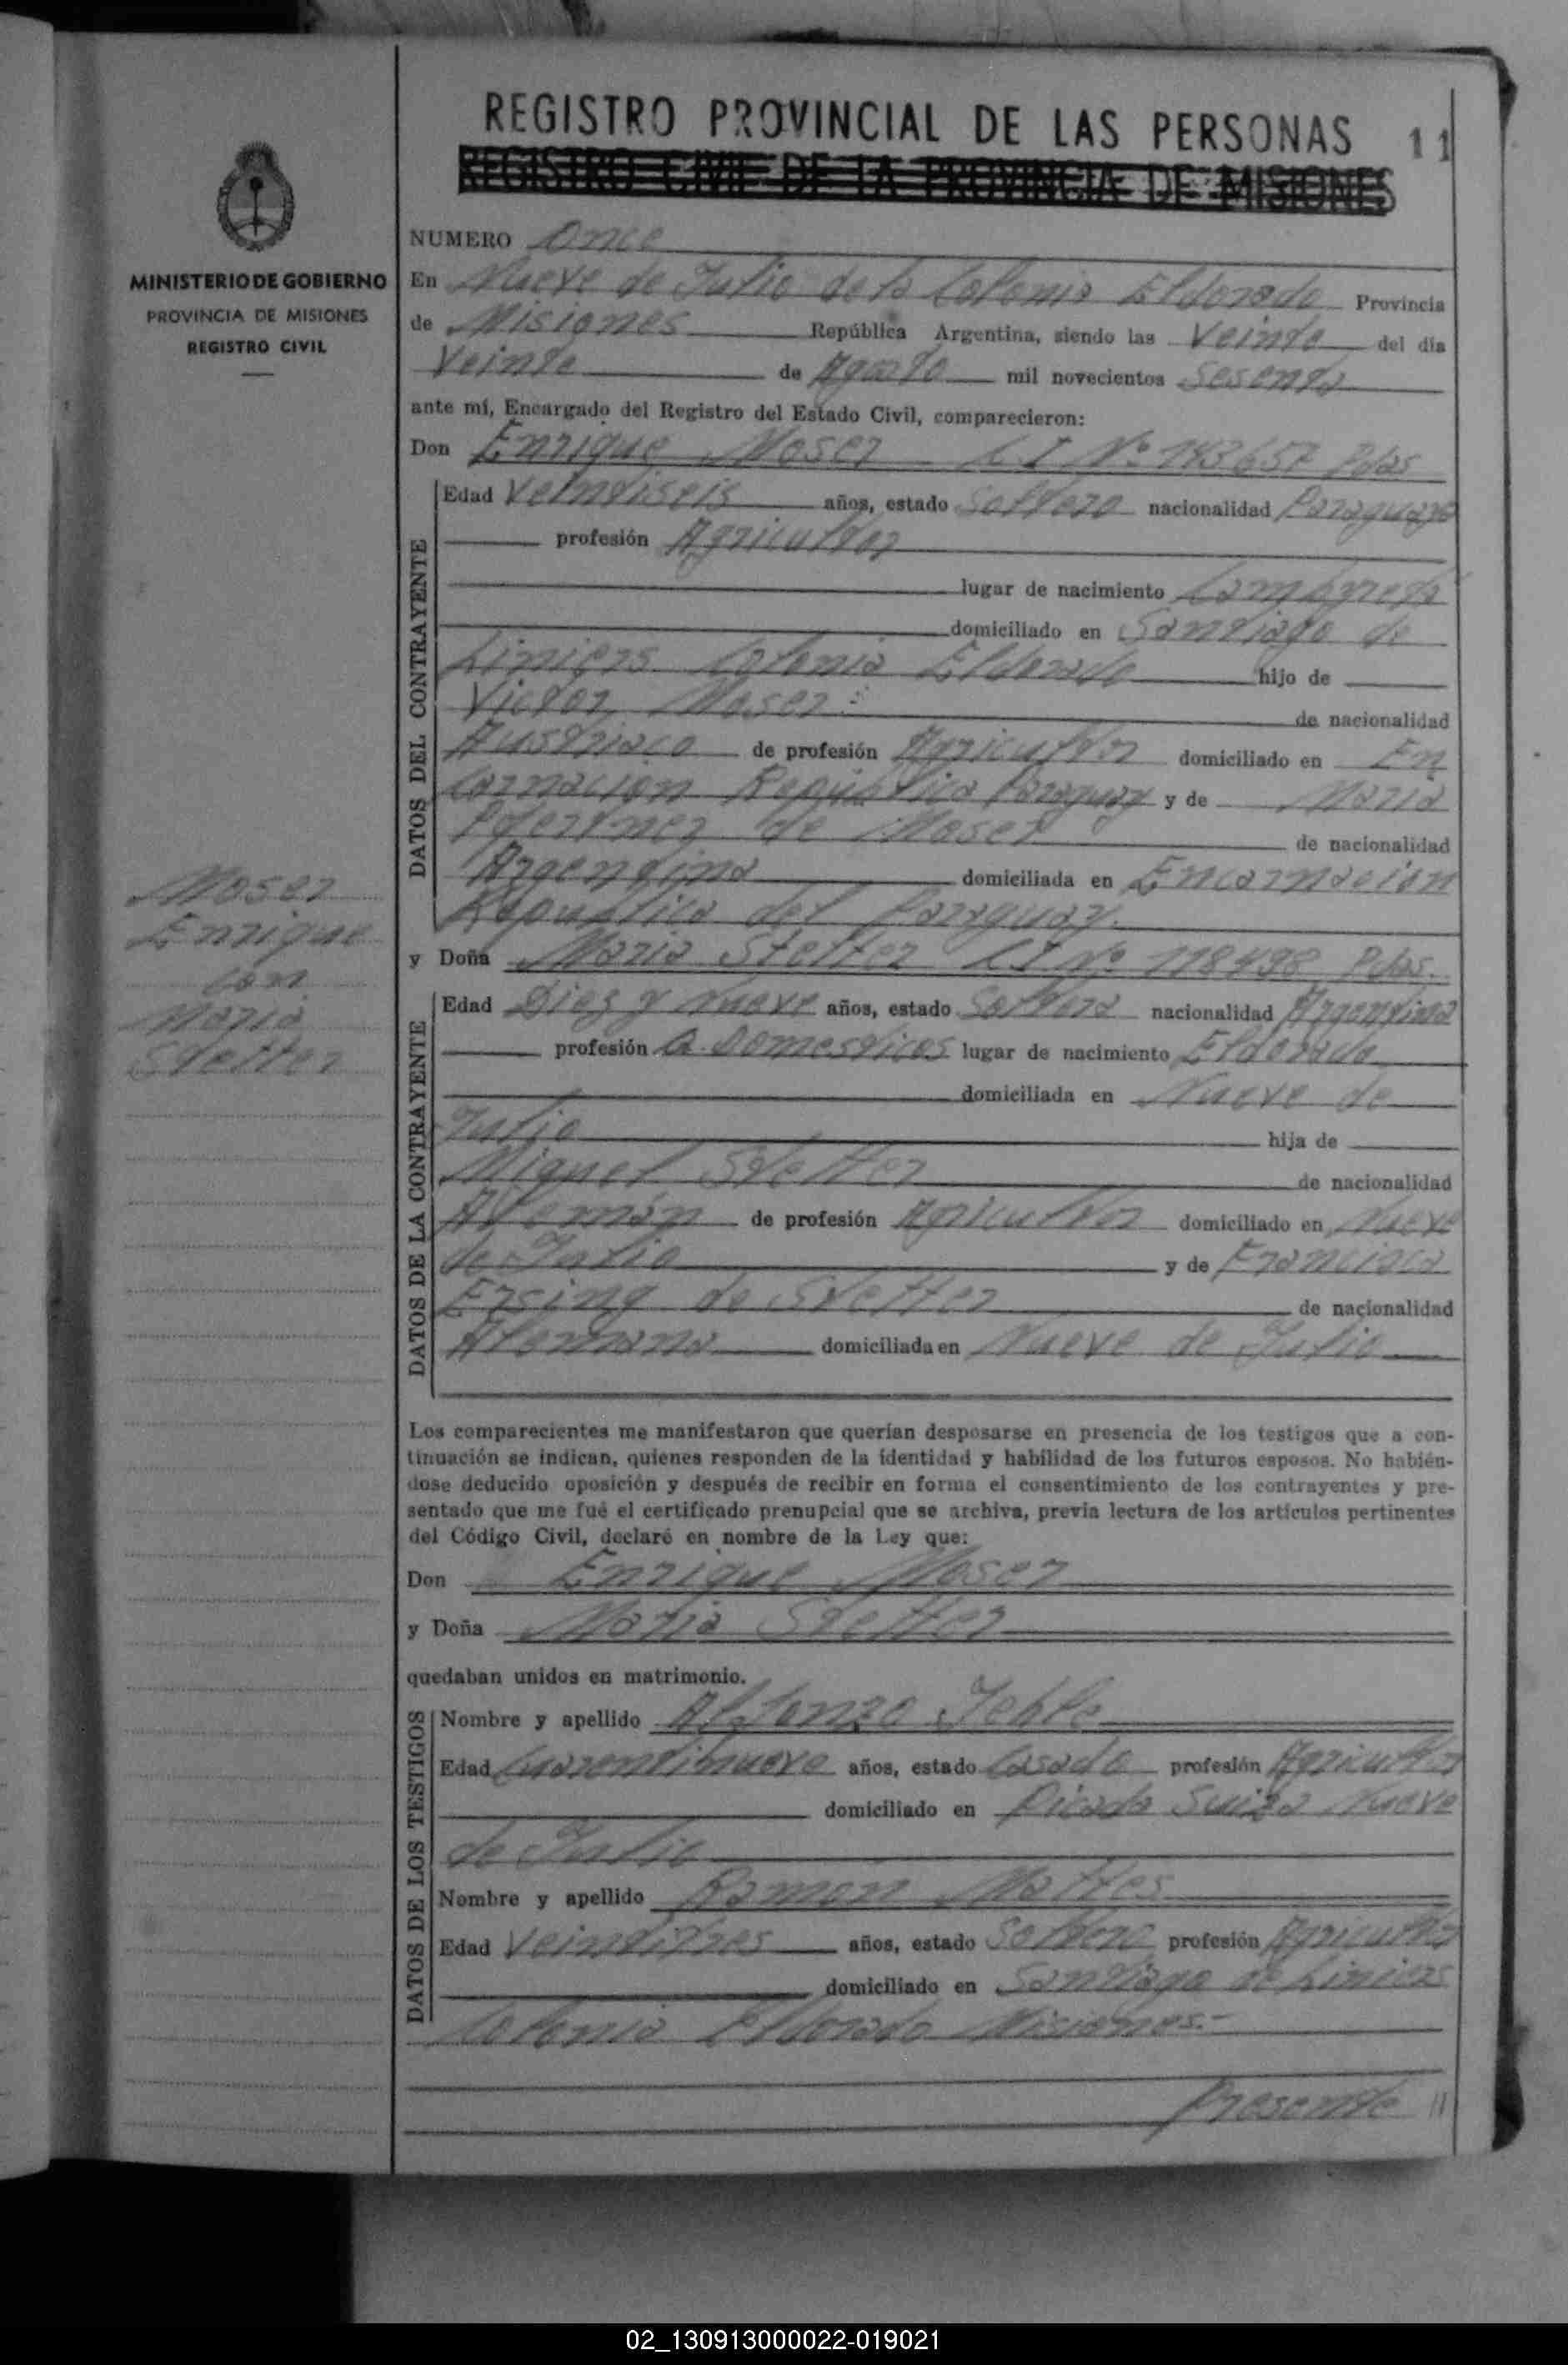 REGISTRO PROVINCIAL DE LAS PERSONAS 11
REGISTRO CIVIL DE LA PROVINCIA DE MISIONES
MINISTERIO DE GOBIERNO
PROVINCIA DE MISIONES
REGISTRO CIVIL
Moser
Enrique
con
Maria
Stetter
NUMERO Once
En Nueve de Julio de la Colonia Eldorado Provincia
de Misiones República Argentina, siendo las Veinte del día
Veinte de Agosto mil novecientos Sesenta
ante mí, Encargado del Registro del Estado Civil, comparecieron:
Don Enrique Moser C.I Nº 183657 Pdas
DATOS DEL CONTRAYENTE
Edad Veintiseis años, estado Soltero nacionalidad Paraguayo
profesión Agricultor
lugar de nacimiento Cambyretá
domiciliado en Santiago de
Liniers Colonia Eldorado hijo de
Victor Moser
de nacionalidad
Austriaco de profesión Agricultor domiciliado en En
carnacion Republica Paraguay y de Maria
de Moser de nacionalidad
Argentina domiciliada en Encarnacion
Republica del Paraguay.
y Doña Maria Stetter C.I Nº 118498 Pdas.
DATOS DE LA CONTRAYENTE
Edad Diez y Nueve años, estado Soltera nacionalidad Argentina
profesión Q. Domesticos lugar de nacimiento Eldorado
domiciliada en Nueve de
Julio hija de
Miguel Stetter de nacionalidad
Alemán de profesión Agricultor domiciliado en Nueve
de Julio y de Francisca
Ersing de Stetter de nacionalidad
Alemana domiciliada en Nueve de Julio
Los comparecientes me manifestaron que querían desposarse en presencia de los testigos que a con-
tinuación se indican, quienes responden de la identidad y habilidad de los futuros esposos. No habién-
dose deducido oposición y después de recibir en forma el consentimiento de los contrayentes y pre-
sentado que me fué el certificado prenupcial que se archiva, previa lectura de los artículos pertinentes
del Código Civil, declaré en nombre de la Ley que:
Don Enrique Moser
y Doña Maria Stetter
quedaban unidos en matrimonio.
DATOS DE LOS TESTIGOS
Nombre y apellido Alfonzo Jehle
Edad Cuarentinueve años, estado Casado profesión Agricultor
domiciliado en Picada Suiza Nueve
de Julio
Nombre y apellido Ramon Mattes
Edad Veintitres años, estado Soltero profesión Agricultor
domiciliado en Santiago de Liniers
Colonia Eldorado Misiones.-
Presente //
02_130913000022-019021